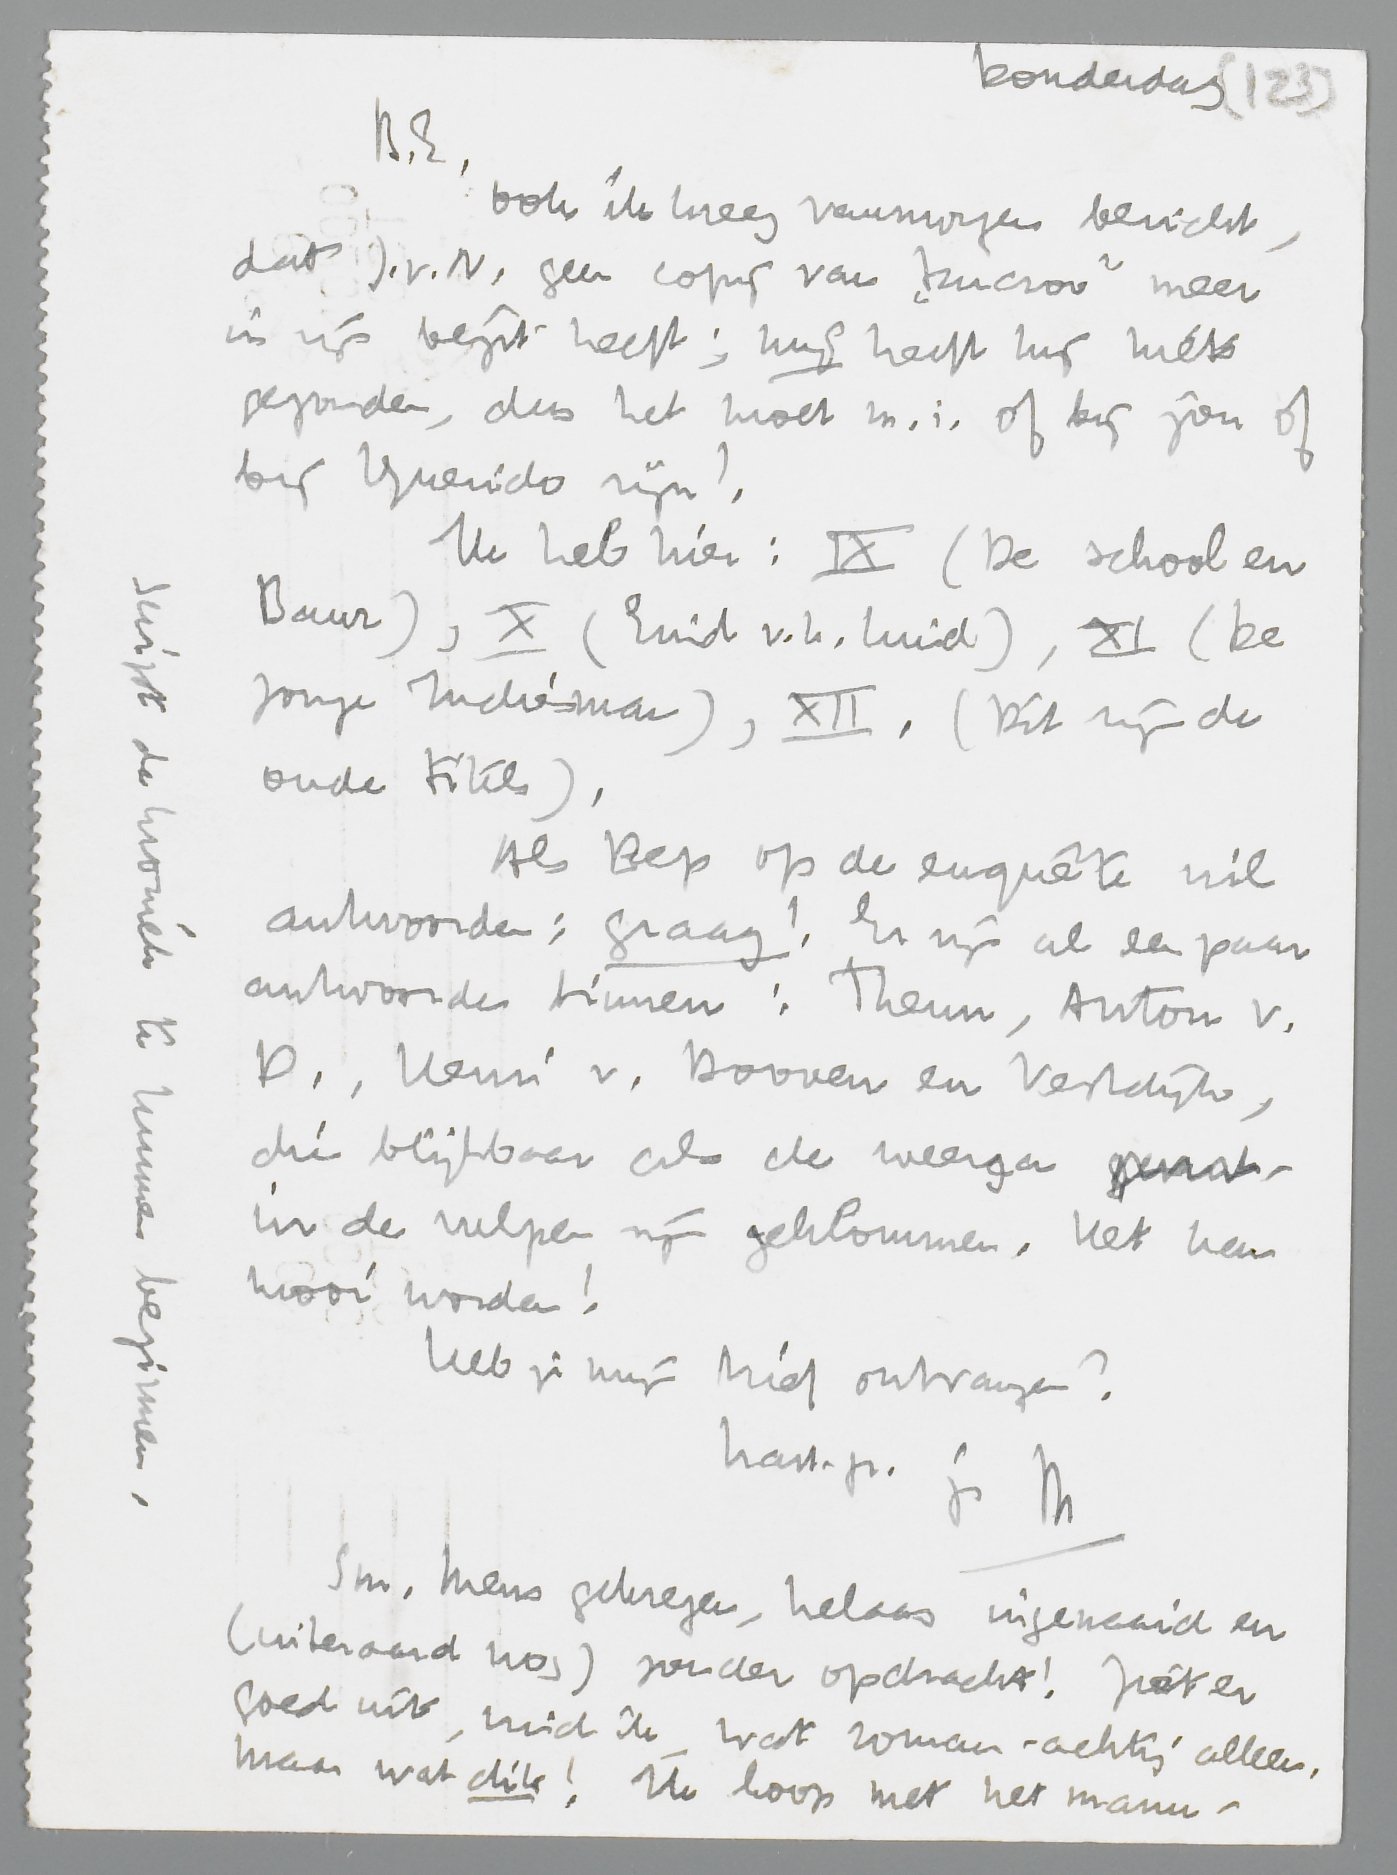 Donderdag (123)
B.E.,
ook ik kreeg vanmorgen bericht,
dat J.v.N. geen copij van „Ducroo" meer
in zijn bezit heeft; hij heeft hij niets
gezonden, dus het moet m.i. óf bij jou óf
bij Querido zijn!
Ik heb hier: IX (De school en
Baur), X (Zuid v.h. luid), XI (De
jonge Indiësman), XII. (Dit zijn de
oude titels).
Als Bep op de enquête wil
antwoorden: graag! Er zijn al een paar
antwoorden binnen: Theun, Anton v.
D., Henri v. Booven en Vestdijk,
die blijkbaar als de weerga
in de pen zijn geklommen. Het kan
mooi worden!
Heb je mijn brief ontvangen?
hart. gr. je M
Sm. Mens gekregen, helaas ingenaaid en
(uiteraard nog) zonder opdracht! Ziet er
goed uit, vind ik, wat roman-achtig alleen,
maar wat dik! Ik hoop met het manu-
script de kroniek te kunnen beginnen.